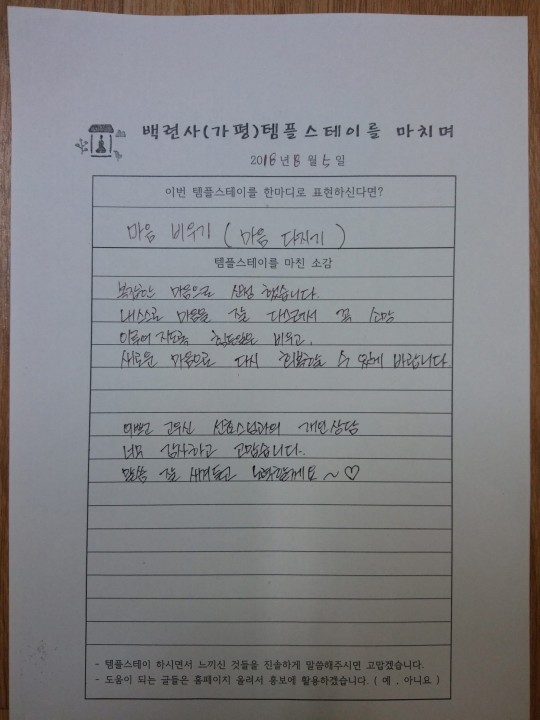 백련사(가평)템플스테이를 마치며
2018년 8월 5일
이번 템플스테이를 한마디로 표현하신다면?
마음 비우기 ( 마음 다지기 )
템플스테이를 마친 소감
복잡한 마음으로 신청 했습니다.
내스스로 마음을 잘 다스려서 꼭 소망
이루어 지도록 힘든일은 비우고,
새로운 마음으로 다시 회복할 수 있게 바랍니다
이쁘고 고우신 선효스님과의 개인상담
너무 감사하고 고맙습니다.
말씀 잘 새겨듣고 노력할께요 ~ ♡
- 템플스테이 하시면서 느끼신 것들을 진솔하게 말씀해주시면 고맙겠습니다.
- 도움이 되는 글들은 홈페이지 올려서 홍보에 활용하겠습니다. ( 예 , 아니요 )